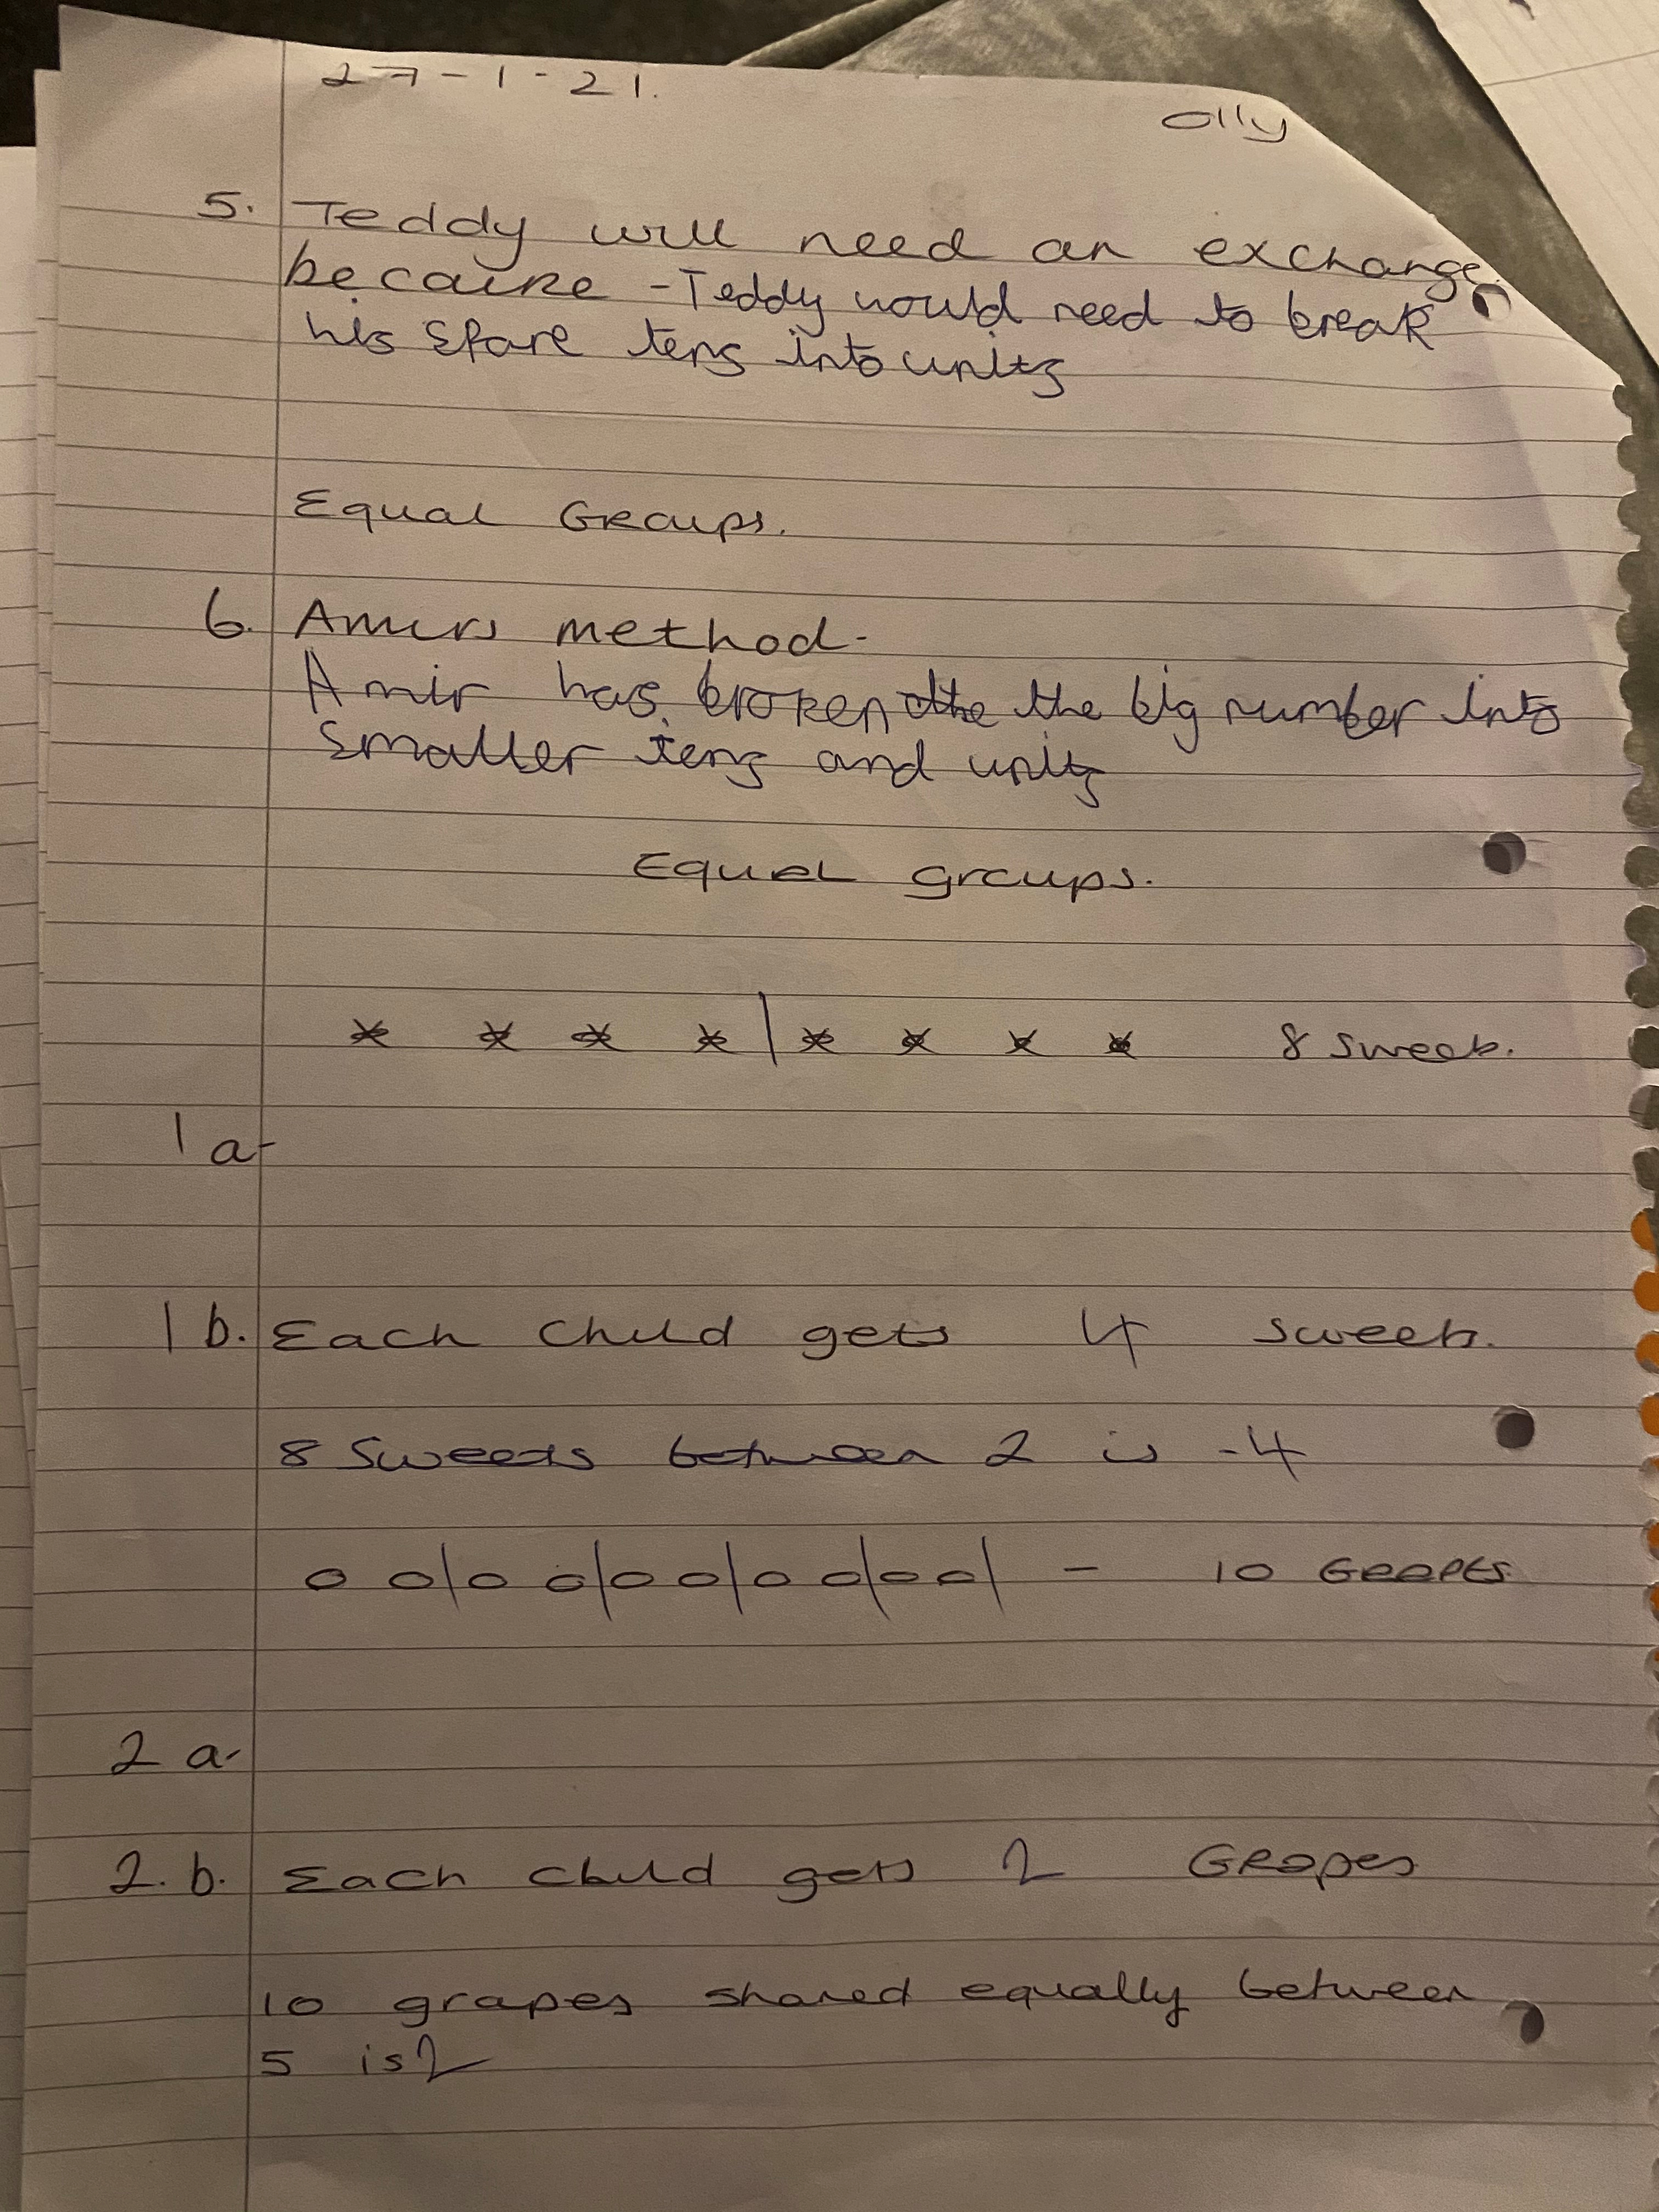 27-1-21.
Olly
5. Teddy will need an exchange
because - Teddy would need to break
his spare tens into units
Equal Groups.
6. Amirs method-
Amir has broken the the big number into
smaller tens and units
Equal groups.
8 sweets.
1a-
1b. Each child gets 4 sweets.
8 sweets between 2 is -4
- 10 Grapes
2a-
2.b. Each child gets 2 Grapes
10 grapes shared equally between
5 is 2